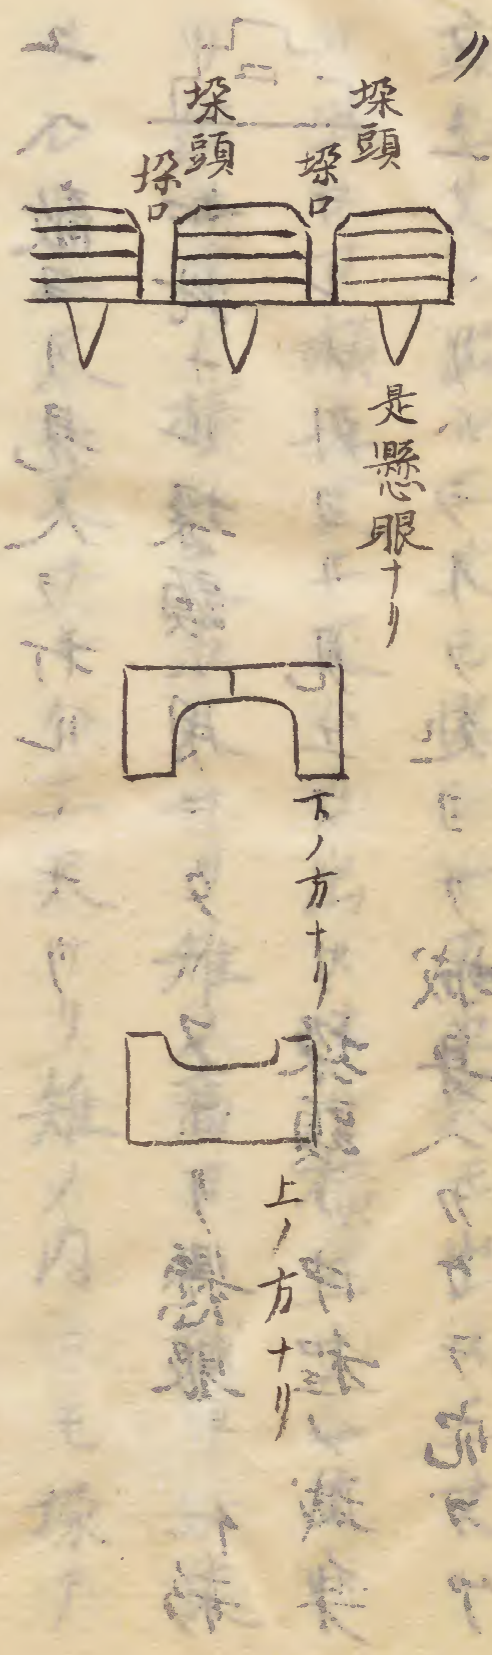 リ
垜頭
垜口
垜頭
垜口
是懸眼ナリ
下ノ方ナリ
上ノ方ナリ